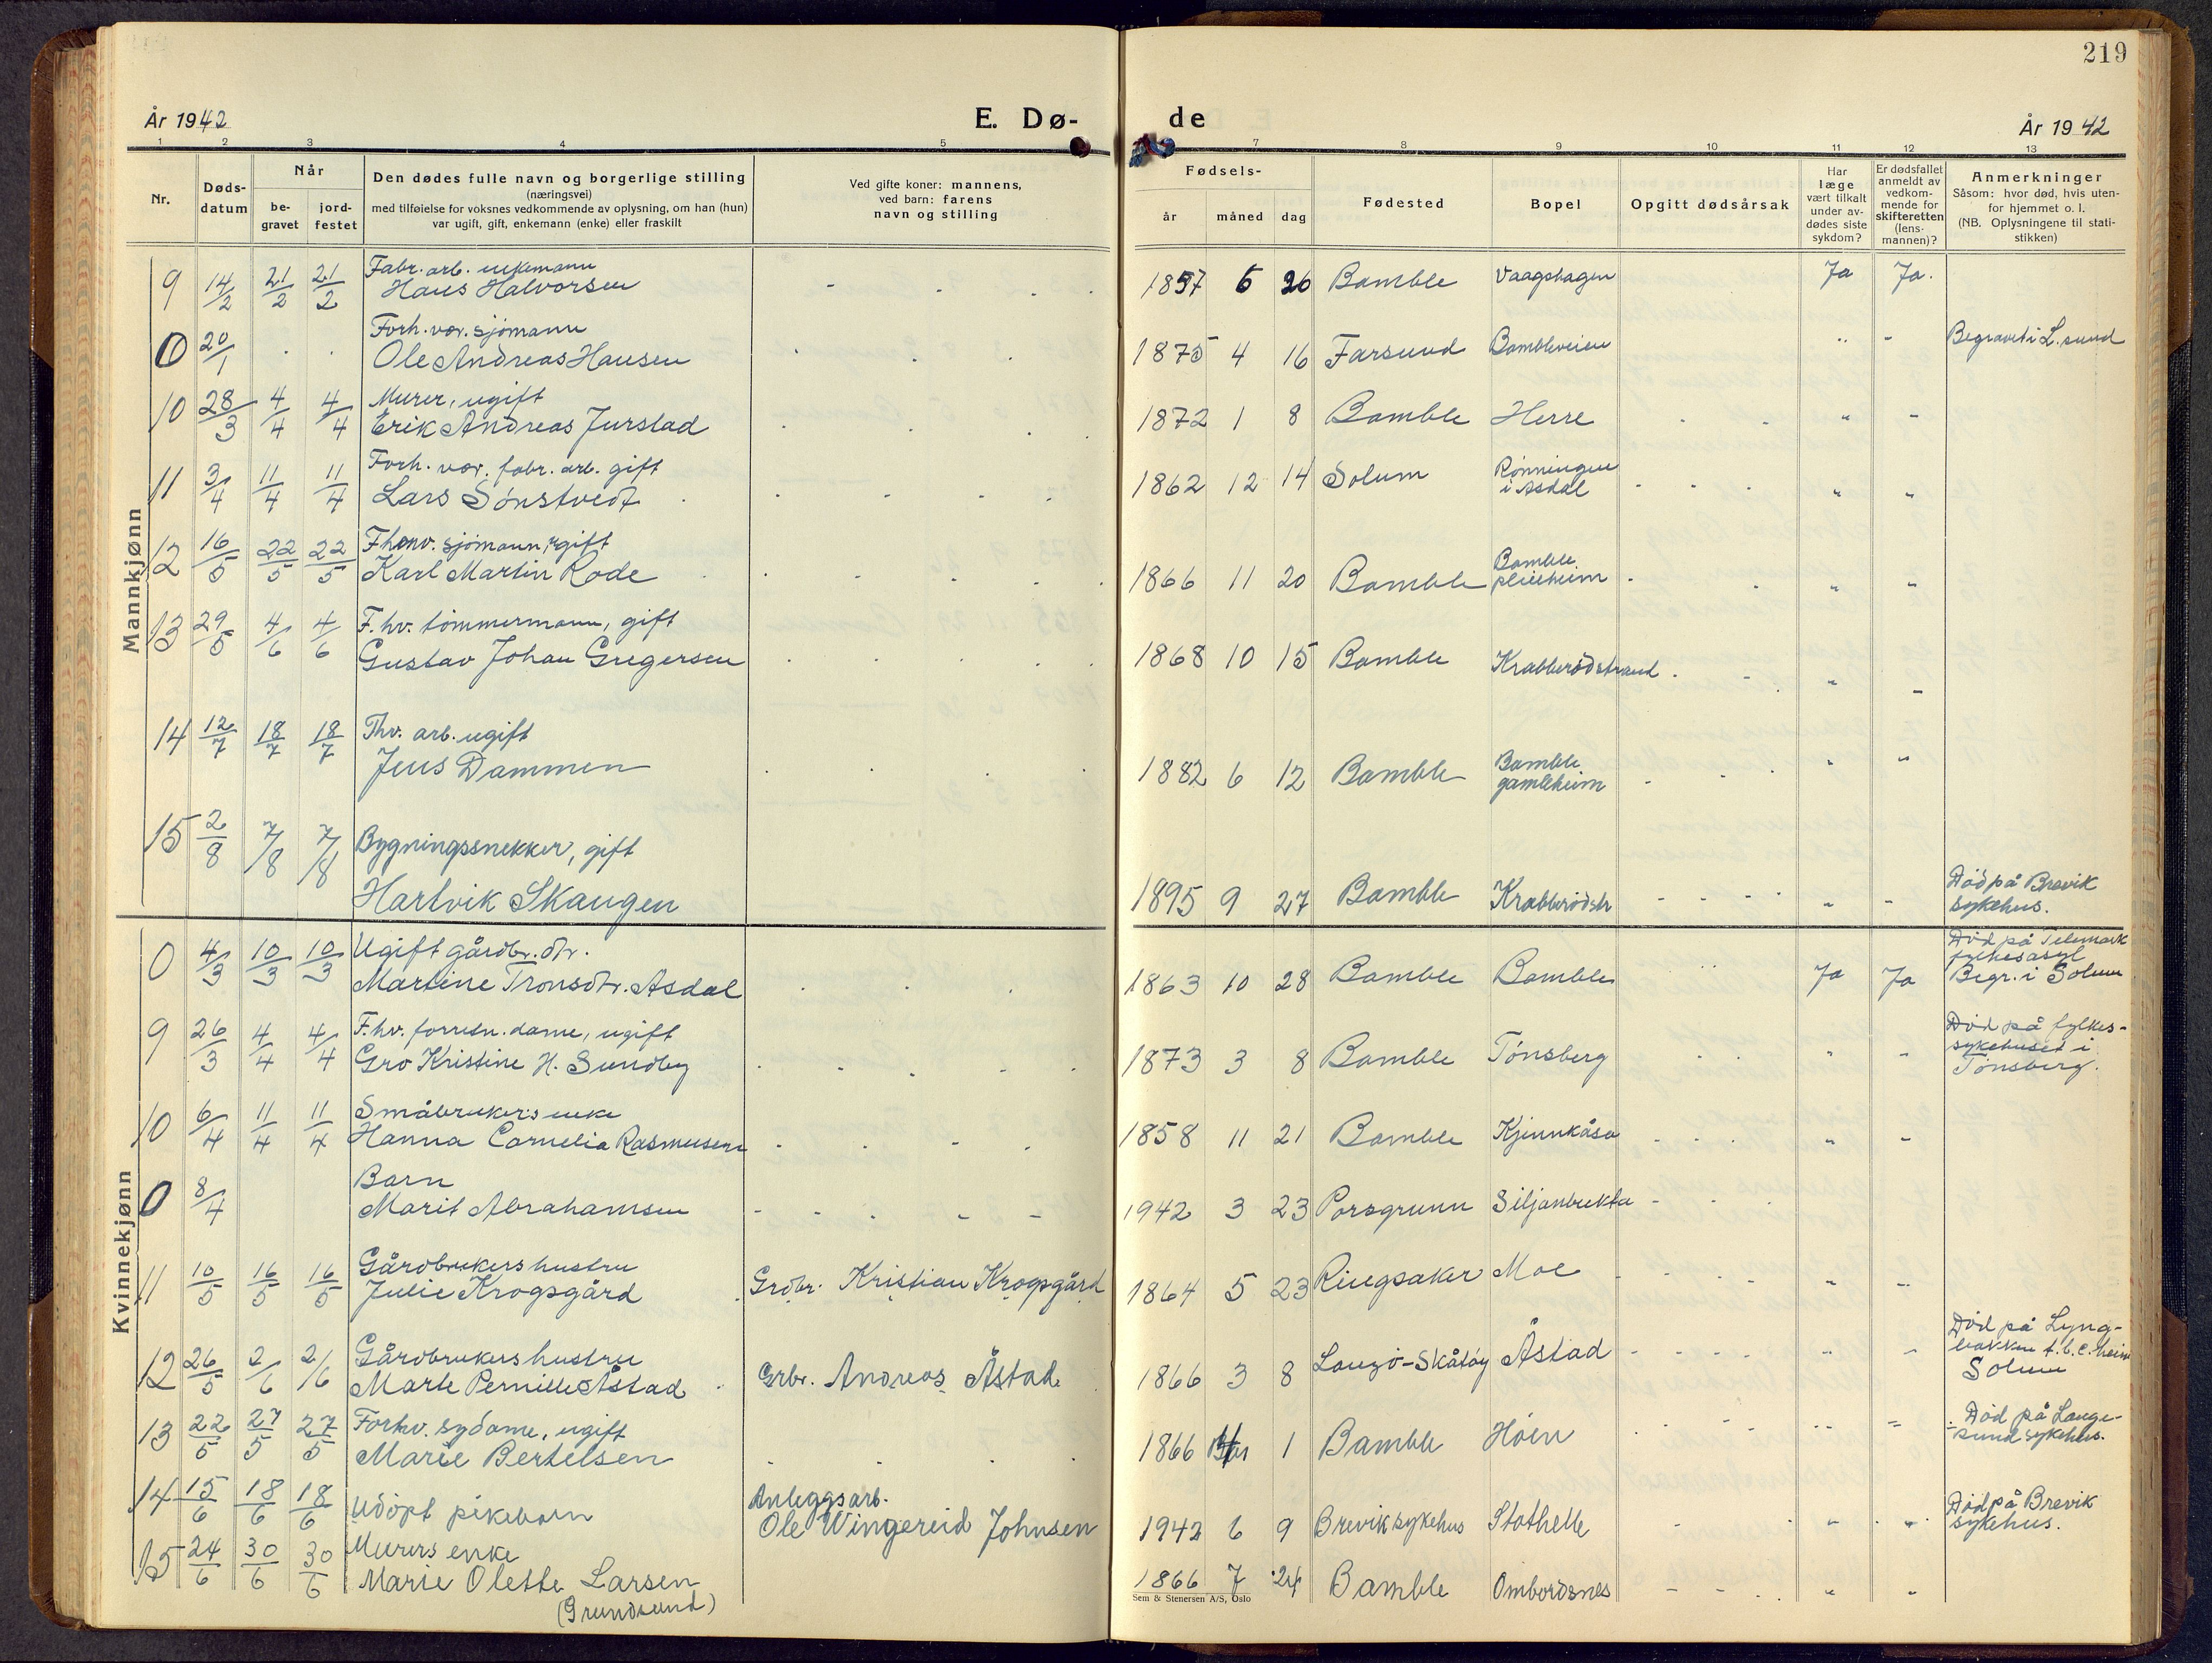 219
År 1942
E. Dø-
de
År 1942
1 2 3 4 5 7 8 9 10 11 12 13
Nr.
Døds-
datum
Når
be-
gravet
jord-
festet
Den dødes fulle navn og borgerlige stilling
(næringsvei)
med tilføielse for voksnes vedkommende av oplysning, om han (hun)
var ugift, gift, enkemann (enke) eller fraskilt
Ved gifte koner: mannens,
ved barn: farens
navn og stilling
Fødsels-
år måned dag
Fødested
Bopel
Opgitt dødsårsak
Har
læge
vært tilkalt
under av-
dødes siste
sykdom?
Er dødsfallet
anmeldt av
vedkom-
mende for
skifteretten
(lens-
mannen)?
Anmerkninger
Såsom: hvor død, hvis uten-
for hjemmet o. l.
(NB. Oplysningene til stati-
stikken)
Mannkjønn
Fabr. arb. enkemann
9 14/2 21/2 21/2 Hans Halvorsen - 1857 6 26 Bamble Vaagshagen Ja Ja.
Forh. vær. sjömann
0 20/1 Ole Andreas Hansen 1875 4 16 Farsund Bambleveien " - Begravet i L.sund
Murer, ugift
10 28/3 4/4 4/4 Erik Andreas Furstad 1872 1 8 Bamble Herre " -
Forh. vær. fabr. arb. gift
11 3/4 11/4 11/4 Lars Sönstvedt 1862 12 14 Solum Rönningen
i Asdal " "
Fhenv. sjömann, gift
12 16/5 22/5 22/5 Karl Martin Rode 1866 11 20 Bamble Bamble
pleieheim " "
F. hv. tömmermann, gift
13 29/5 4/6 4/6 Gustav Johan Gregersen 1868 10 15 Bamble Krabberödstrand " -
Fhv. arb. ugift
14 12/7 18/7 18/7 Jens Dammen 1882 6 12 Bamble Bamble
gamleheim " "
Bygningssnekker, gift
15 2/8 7/8 7/8 Hartvik Skaugen 1895 9 27 Bamble Krabberödstr " - Död på Brevik
sykehus.
Kvinnekjønn
Ugift gårdbr. dtr.
0 4/3 10/3 10/3 Martine Tronsdtr. Asdal 1863 10 28 Bamble Bamble Ja Ja Död på Telemark
fylkesasyl
Begr. i Solum
F. hv. forretn. dame, ugift
9 26/3 4/4 4/4 Gro Kristine H. Sundby 1873 3 8 Bamble Tönsberg " " Död på fylkes-
sykehuset i
Tönsberg.
Småbrukers enke
10 6/4 11/4 11/4 Hanna Cornelia Rasmussen 1858 11 21 Bamble Kjinnkåsa " -
Barn
0 8/4 Marit Abrahamsen - - - - - 1942 3 23 Porsgrunn Siljanbukta
Gårdbrukers hustru
11 10/5 16/5 16/5 Julie Krogsgård Grdbr. Kristian Krogsgård 1864 5 23 Ringsaker Moe " -
Gårdbrukers hustru
12 26/5 2/6 2/6 Marte Pernille Åstad Grbr. Andreas Åstad 1866 3 8 Langö-Skåtöy Åstad " " Död på Lyng-
bakken t.b.c. heim
Solum
Forhv. sydame, ugift
13 22/5 27/5 27/5 Marie Bertelsen 1866 1 Bamble Höen " " Död på Lange-
sund sykehus.
14 15/6 18/6 18/6 Udöpt pikebarn Anleggsarb.
Ole Wingereid Johnsen 1942 6 9 Brevik sykehus Stathelle " " Död på Brevik
sykehus.
Murers enke
15 24/6 30/6 30/6 Marie Olette Larsen
(Grundsund) 1866 7 24 Bamble Ombordsnes " "
Sem & Stenersen A/S, Oslo